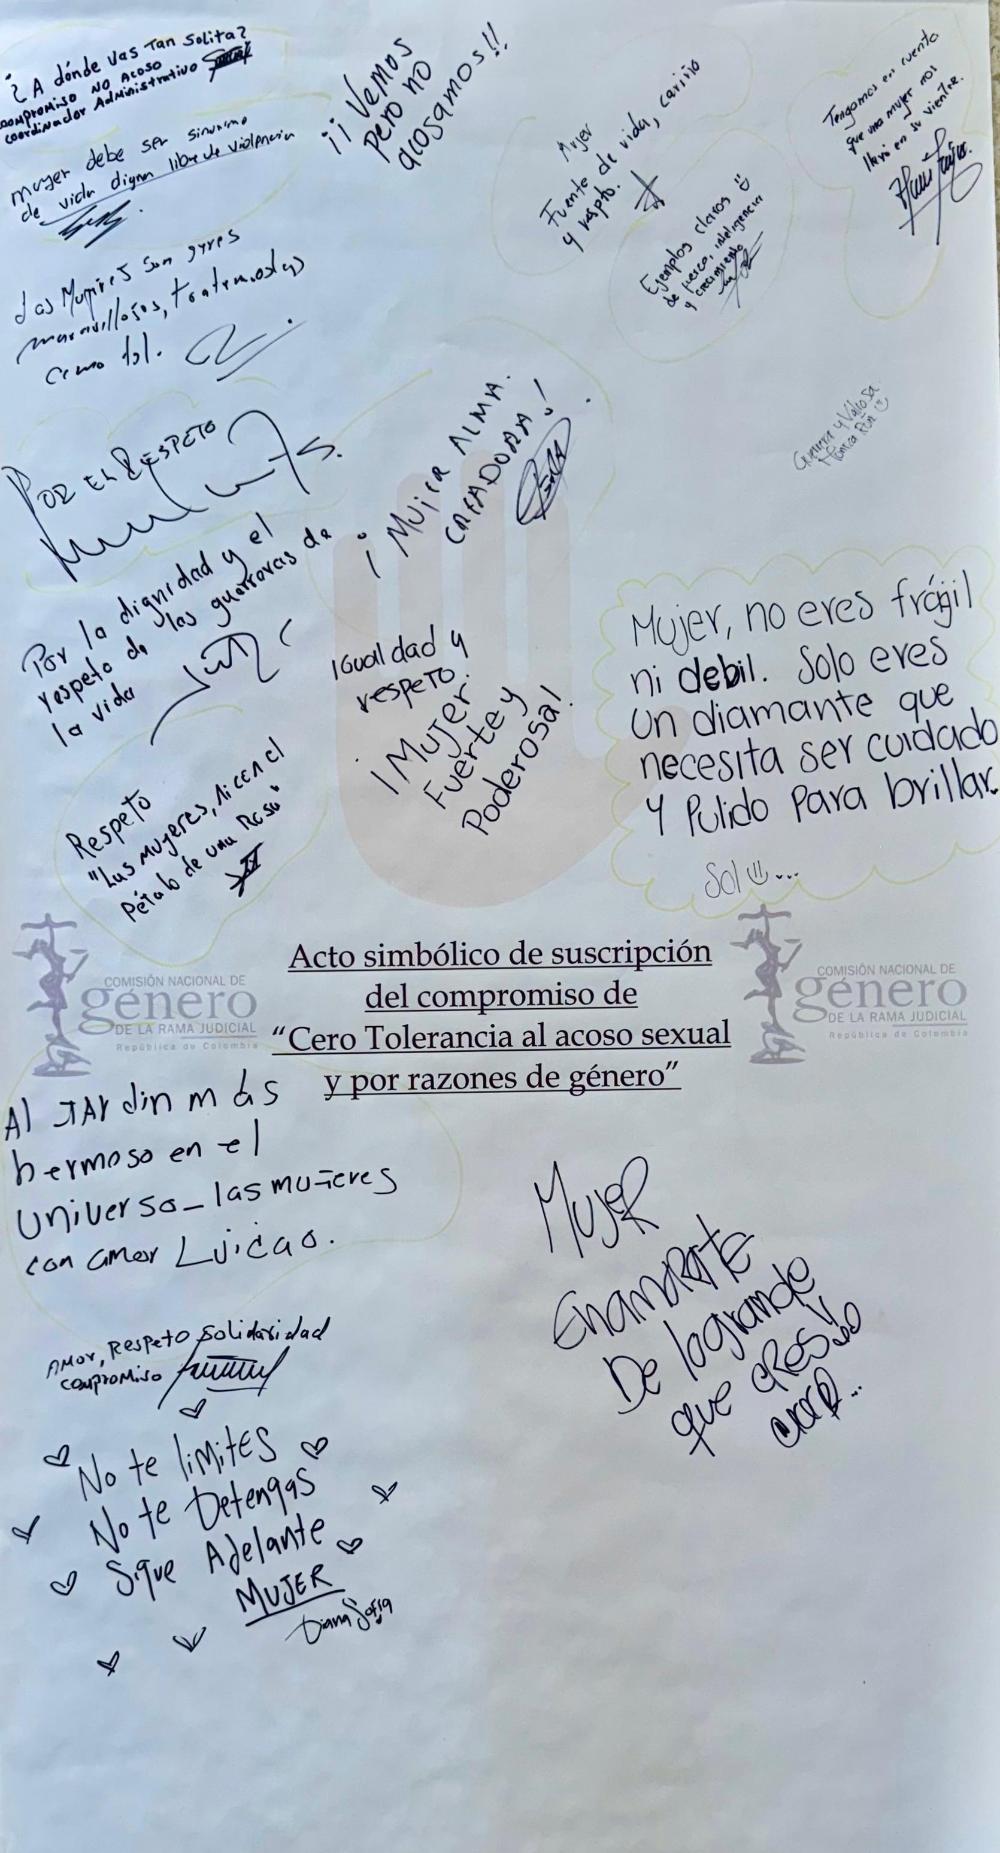 ¿A dónde vas Tan Solita?
compromiso NO ACOSO
coordinador Administrativo
mujer debe ser sinonimo
de vida digna libre de violencia
¡¡Vemos
pero no
acosamos!!
Mujer
Fuente de vida, cariño
y respto.
Ejemplos claros
de fuerza, inteligencia
y crecimiento
Tengamos en cuenta
que una mujer nos
llevó en su vientre.
Las Mujires son seres
maravillosos, tratemoslas
como tal.
POR EL RESPETO
Guerrera y Valiosa
¡MUJER ALMA
CREADORA!
Por la dignidad y el
respeto de las guerreras de
la vida
IGualdad y
respeto.
¡Mujer
Fuerte y
Poderosa!
Mujer, no eres frágil
ni debil. Solo eres
un diamante que
necesita ser cuidado
y Pulido para brillar.
Sol ...
Respeto
"Las mujeres, ni con el
Pétalo de una Rosa"
Acto simbólico de suscripción
del compromiso de
“Cero Tolerancia al acoso sexual
y por razones de género”
COMISIÓN NACIONAL DE
género
DE LA RAMA JUDICIAL
República de Colombia
COMISIÓN NACIONAL DE
género
DE LA RAMA JUDICIAL
República de Colombia
Al JARdin más
hermoso en el
universo_las mujeres
con amor
Mujer
Enamorate
De lo grande
que eres y
AMor, Respeto Solidaridad
compromiso
No te limites
No te Detengas
Sigue Adelante
MUJER
Diana Sofia